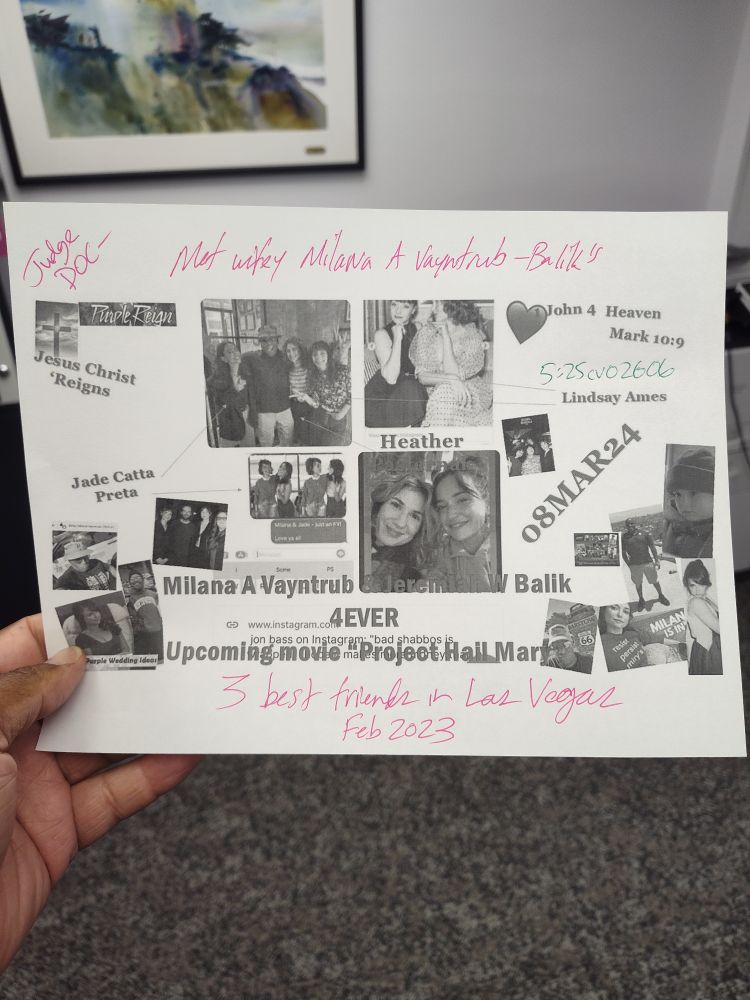 Judge
DOC-
Met wifey Milana A Vayntrub-Balik's
Purple Reign
Jesus Christ
'Reigns
John 4 Heaven
Mark 10:9
5:25cv02606
Lindsay Ames
Heather
08MAR24
Jade Catta
Preta
Milana & Jade - just an FYI
Love ya all
Milana A Vayntrub & Jeremiah W Balik
4EVER
www.instagram.com
jon bass on Instagram: "bad shabbos is
Upcoming movie "Project Hail Mary
Purple Wedding Ideas
66
MILANA
IS IN
3 best friends in Las Vegas
Feb 2023